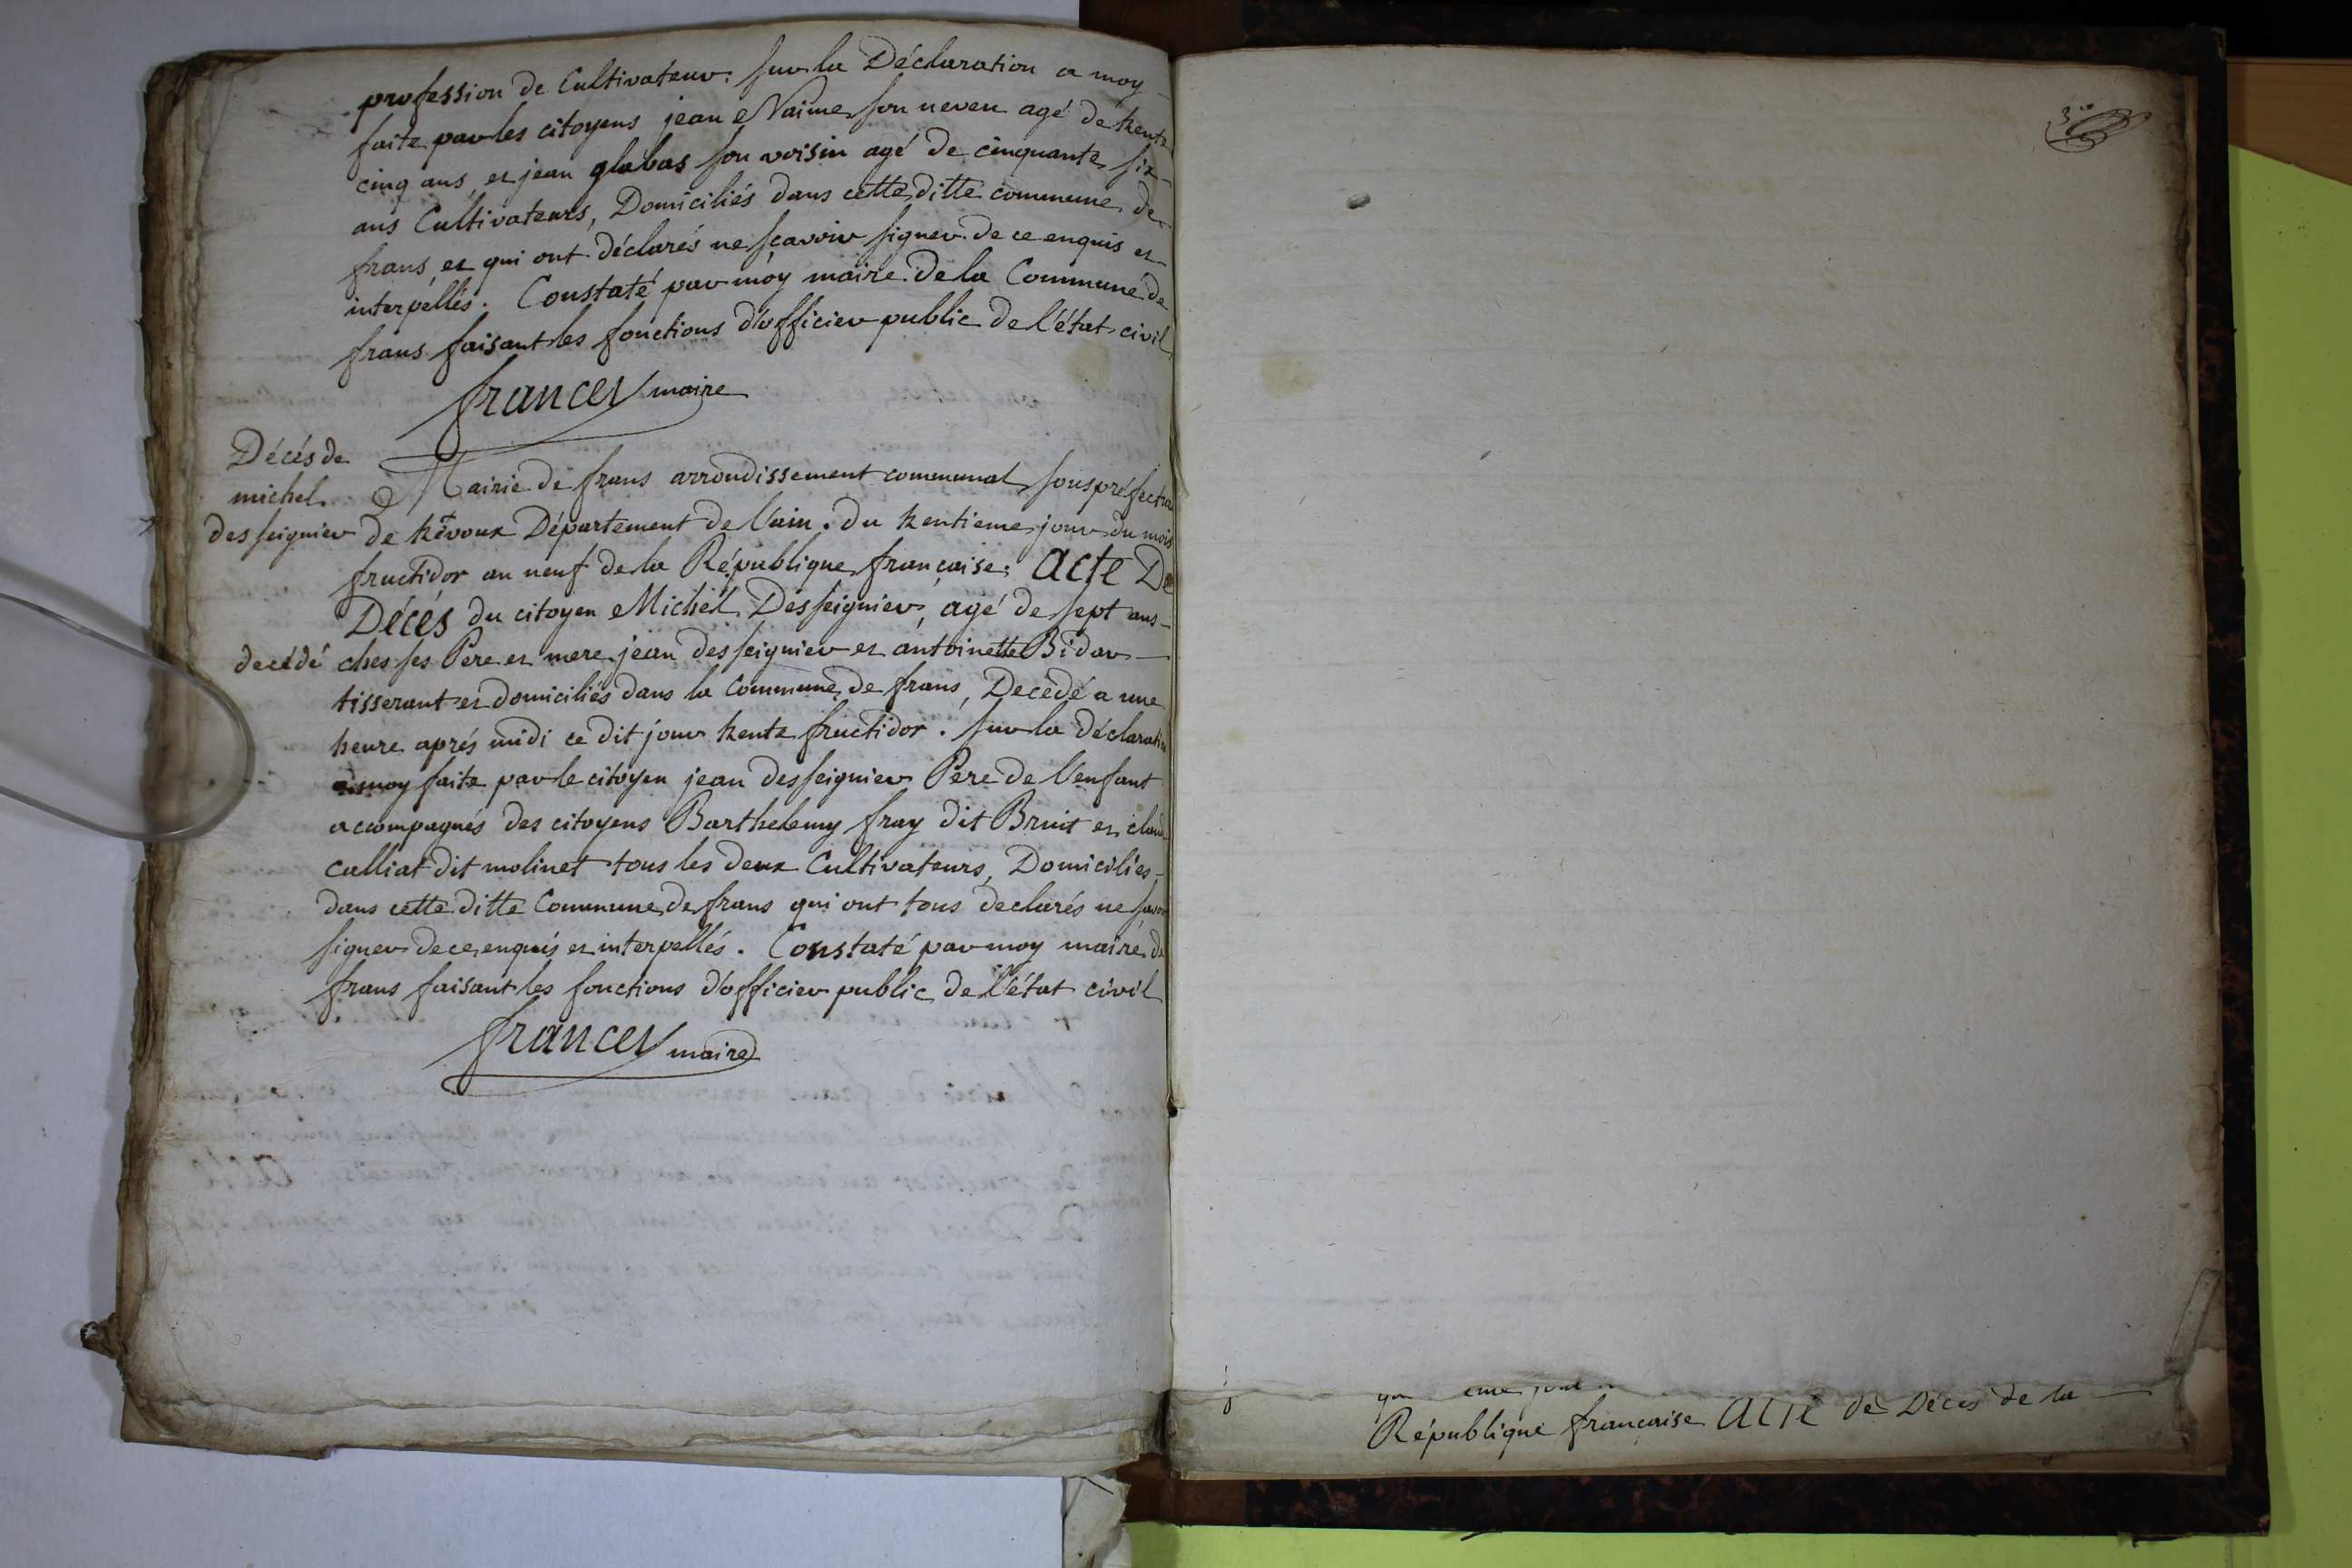 profession de Cultivateur. sur la Déclaration a moy
faite par les citoyens jean Naime son neveu agé de trente
cinq ans et jean glabas son voisin agé de cinquante six
ans Cultivateurs, Domiciliés dans cette ditte commune de
frans et qui ont déclarés ne sçavoir signer de ce enquis et
interpellés. Constaté par moy maire de la Commune de
frans faisant les fonctions d'officier public de l'état civil
francey maire
Décés de
michel
desseignier
Mairie de frans arrondissement communal souspréfectur
de trévoux Département de l'ain. du trentieme jour du mois
fructidor an neuf de la République française. acte De
Décés du citoyen Michel Desseignier, agé de sept ans
decédé ches ses Pere et mere jean desseignier et antoinette Bidar
tisserant et domiciliés dans la Commune de frans, Decedé a une
heure aprés midi ce dit jour trente fructidor. sur la déclaration
a moy faite par le citoyen jean desseignier Pere de l'enfant
accompagnés des citoyens Barthelemy fray dit Bruit et claude
calliat dit molinet tous les deux Cultivateurs, Domiciliés
dans cette ditte Commune de frans qui ont tous declarés ne savoir
signer de ce enquis et interpellés. Constaté par moy maire de
frans faisant les fonctions d'officier public de l'état civil
francey maire
30
République française Acte de Décés de la